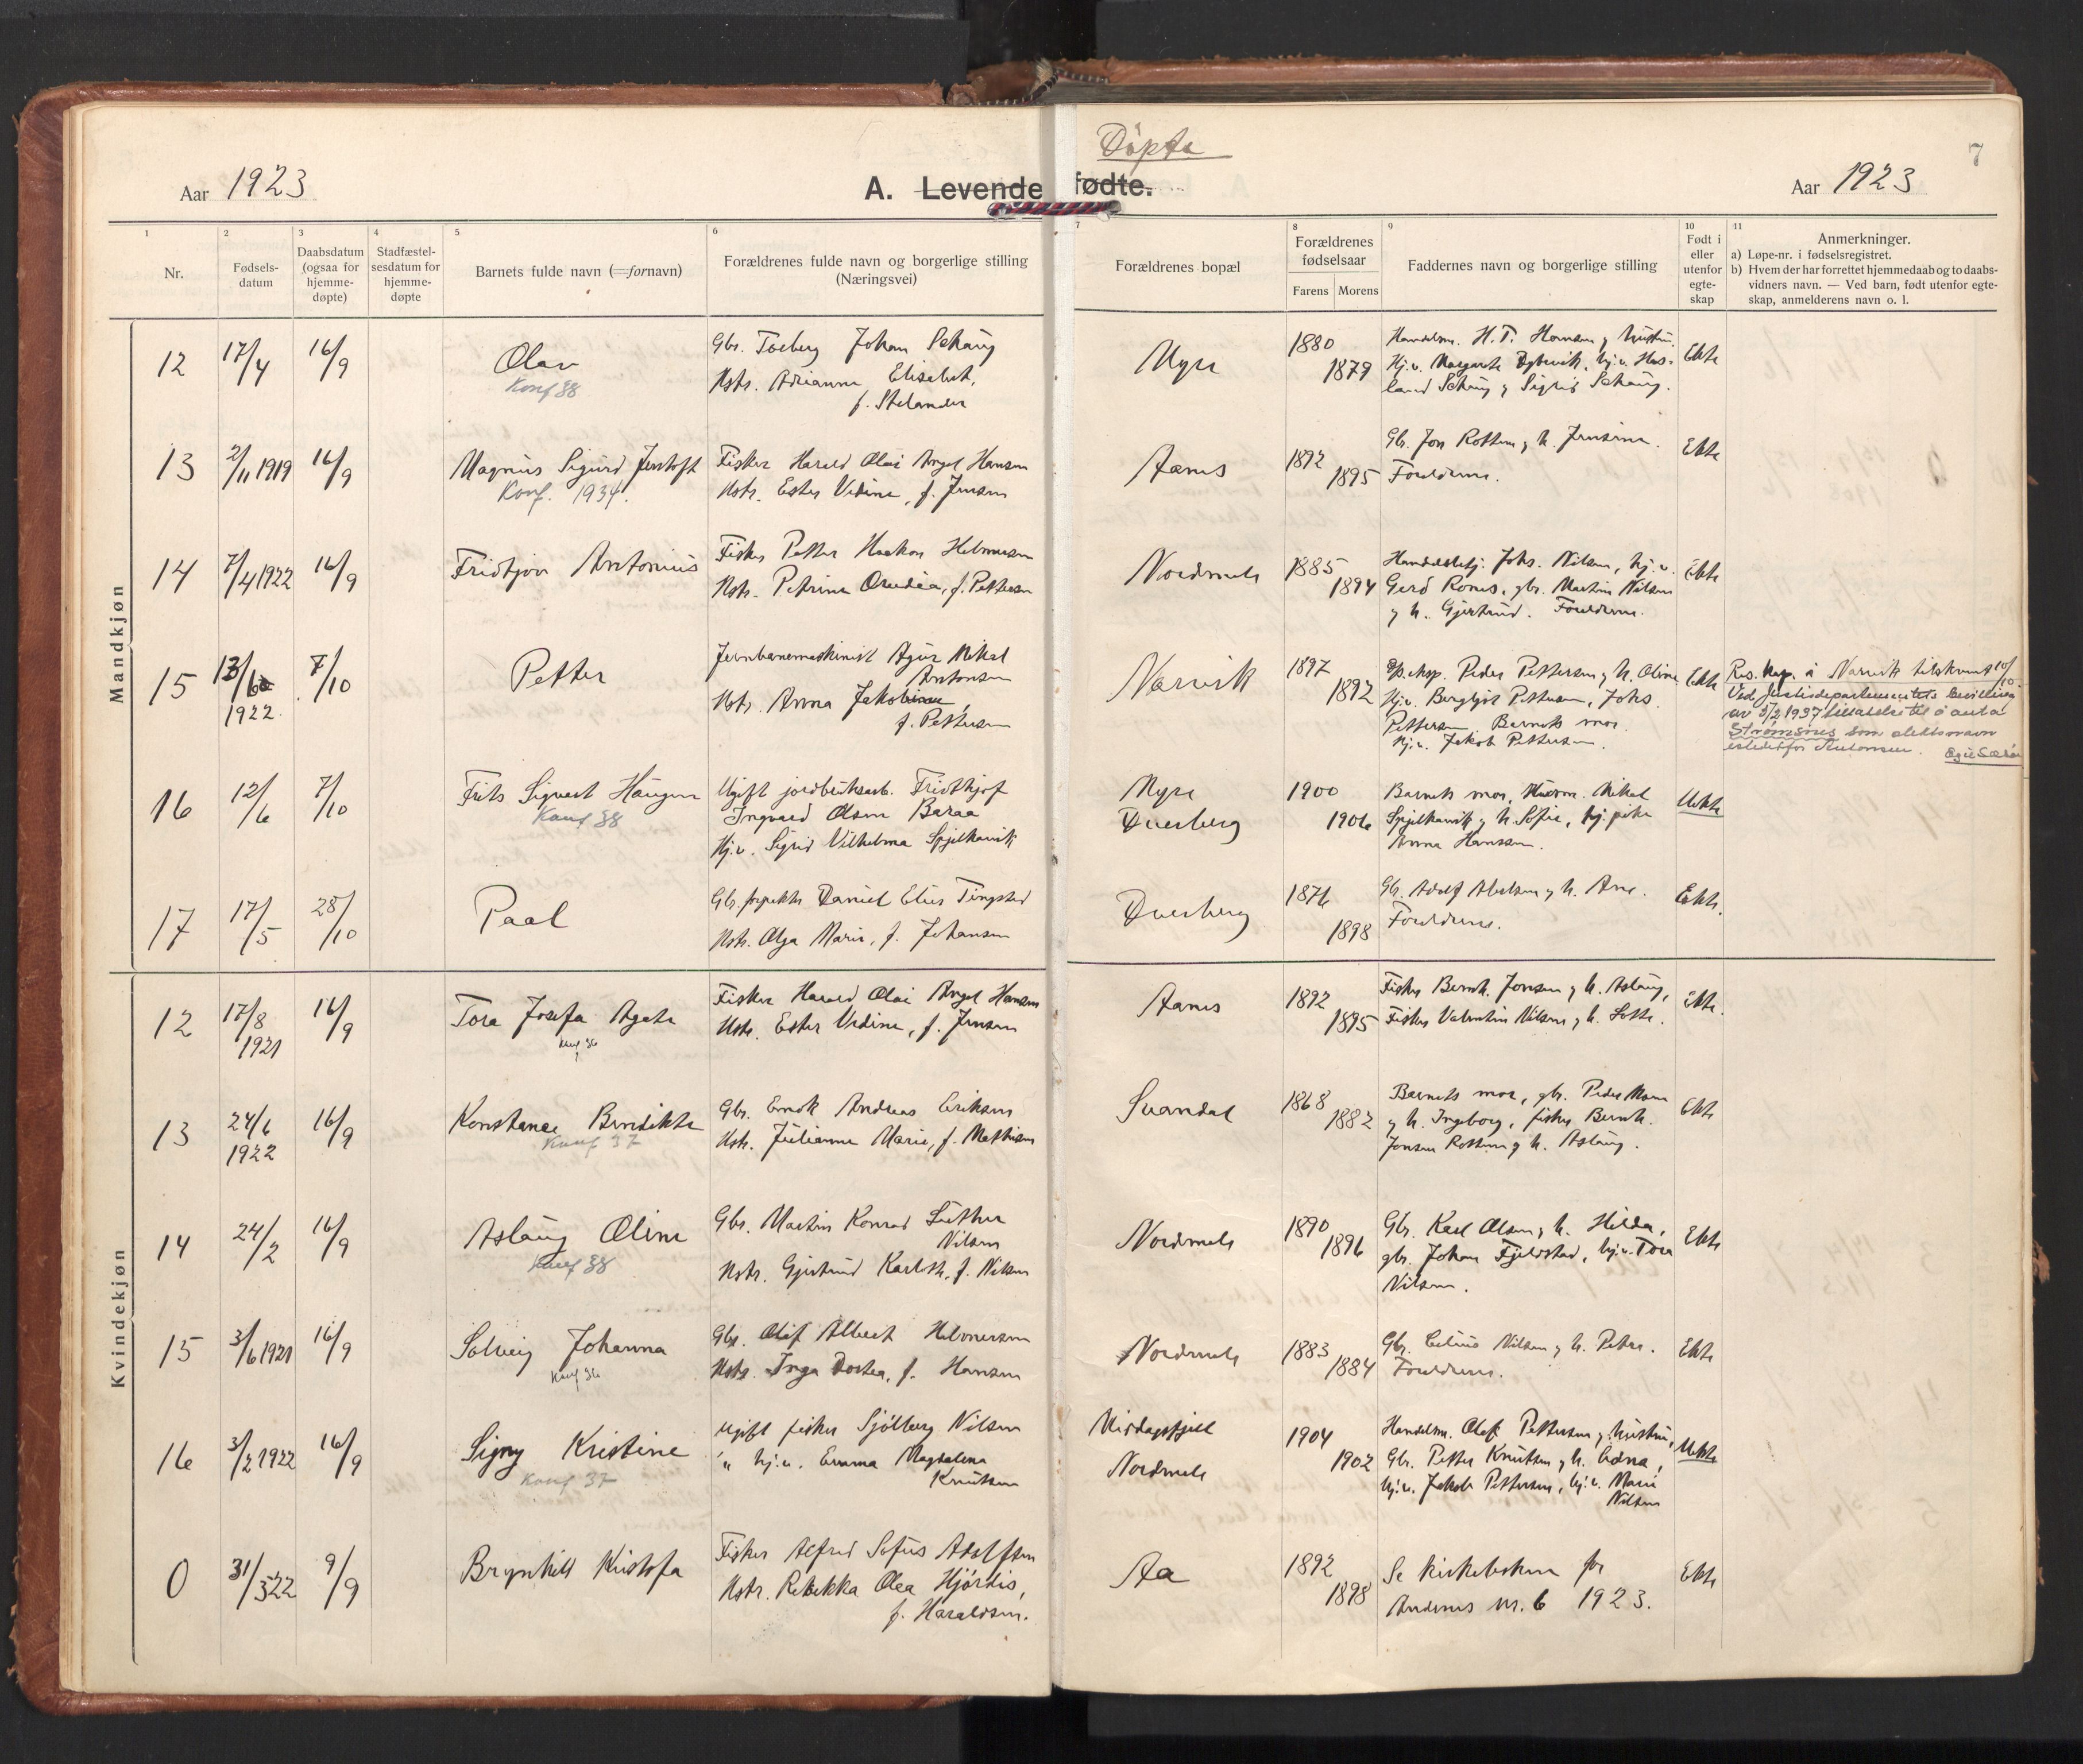 Døpte
7
Aar 1923
A. Levende fødte.
Aar 1923
1
Nr.
2
Fødsels-
datum
3
Daabsdatum
(ogsaa for
hjemme-
døpte)
4
Stadfæstel-
sesdatum for
hjemme-
døpte
5
Barnets fulde navn (=fornavn)
6
Forældrenes fulde navn og borgerlige stilling
(Næringsvei)
7
Forældrenes bopæl
8
Forældrenes
fødselsaar
Farens Morens
9
Faddernes navn og borgerlige stilling
10
Født i
eller
utenfor
egte-
skap
11
Anmerkninger.
a) Løpe-nr. i fødselsregistret.
b) Hvem der har forrettet hjemmedaab og to daabs-
vidners navn. — Ved barn, født utenfor egte-
skap, anmelderens navn o. l.
Mandkjøn
12
17/4
16/9
Olav
Konf 38
Gbr. Torberg Johan Schaug
Hstr. Adrianna Elisabet,
f. Stelander
Myre
1880
1879
Handelsm. H. T. Hansen og hustru.
Ekte
13
2/11 1919
16/9
Magnus Sigurd Jentoft
Konf. 1934.
Fisker Harald Olai Angel Hansen
Hstr. Ester Vedine, f. Jensen
Aanes
1892
1895
Gb. Jon Rotten og h. Jensine.
Foreldrene.
Ekte
14
7/4 1922
16/9
Fridtjov Antonius
Fisker Petter Haakon Helmersen
Hstr. Petrine Orudia, f. Pettersen
Nordmele
1885
1894
Handelsbetj. Johs. Nilsen, hj. v.
Gerd Rones, gbr. Martin Nilsen
og h. Gjertrud. Foreldrene.
Ekte
15
13/6
1922
7/10
Petter
Jernbanemaskinist Agur Mikal
Antonsen
Hstr. Anna Jakobine,
f. Pettersen
Narvik
1897
1892
Dp.eksp. Peder Pettersen og h. Oline
Hj.v. Bergljot Pettersen, Johs.
Pettersen Barnets mor.
Hj.v. Jakob Pettersen.
Ekte
Res. kap. i Narvik tilskrevet 10/10.
Ved Justisdepartementets bevilling
av 5/2 1937 tillatelse til å anta
Strømsnes som slektsnavn
istedetfor Antonsen.
16
12/6
7/10
Frits Sigvart Haugen
Konf 38
Ugift jordbruksarb. Fridthjof
Ingvard Olsen Baraa
Hj.v. Sigrid Vilhelma Spjelkavik
Myre
Dverberg
1900
1906
Barnets mor, Husm. Mikal
Spjelkavik og h. Sofie, hj. pike
Anna Hanssen.
Uekte
17
17/5
28/10
Paal
Gb. forpakter Daniel Elius Tingstad
Hstr. Olga Marie, f. Johansen
Dverberg
1876
1898
Gb. Adolf Abelsen og h. Ane.
Foreldrene.
Ekte.
Kvindekjøn
12
17/8
1921
16/9
Tora Josefa Agate
Konf 36
Fisker Harald Olai Angel Hansen
Hstr. Ester Vedine, f. Jensen
Aanes
1892
1895
Fisker Bernh. Jonsen og h. Aslaug,
Fisker Valentin Nilsen og h. Lotte.
Ekte.
13
24/6
1922
16/9
Konstance Bendikte
Konf 37
Gbr. Enok Andreas Eriksen
Hstr. Julianne Marie, f. Mathisen
Svandal
1868
1882
Barnets mor, gbr. Peder Moen
og h. Ingeborg, fisker Bernh.
Jonsen Rotten og h. Aslaug.
Ekte
14
24/2
16/9
Aslaug Oline
Konf 38
Gbr. Martin Konrad Luther
Nilsen
Hstr. Gjertrud Karlotte, f. Nilsen
Nordmele
1890
1896
Gbr. Karl Olsen og h. Hilda,
gbr. Johan Fjeldstad, hj.v. Tora
Nilsen.
Ekte
15
3/6 1921
16/9
Solveig Johanna
Konf 36
Gbr. Olif Albert Helmersen
Hstr. Inga Dortea, f. Hansen
Nordmele
1883
1884
Gbr. Edius Nilsen og h. Petra.
Foreldrene.
Ekte
16
3/2 1922
16/9
Signy Kristine
Konf 37
Ugift fisker Sjølberg Nilsen
" hj.v. Emma Magdalena
Knutsen
Middagsfjell
Nordmele
1904
1902
Handelsm. Olaf Pettersen og hustru,
Gbr. Petter Knutsen og h. Edna,
hj.v. Jakob Pettersen, hj.v. Marie
Nilsen
Uekte
0
31/3 22
9/9
Brynhild Kristofa
Fisker Alfred Sofus Adolfsen
Hstr. Rebekka Olea Hjørdis,
f. Haraldsen.
Aa
1892
1898
Se kirkeboken for
Andenes nr. 6 1923.
Ekte